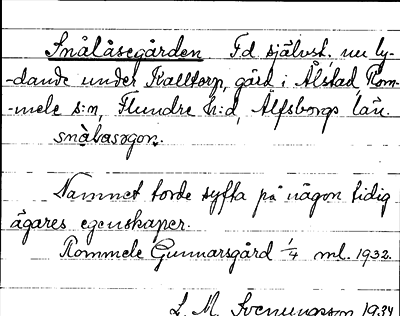 Snålåsegården F.d självst. nu ly-
-dande under Kalltorp, gård i Ålstad, Rom-
-mele s:n, Flundre h:d, Älfsborgs län.
snåbasogon.
Namnet torde syfta på någon tidig
ägares egenskaper.
Rommele Gunnarsgård 1/4 ml. 1932.
L. M. Svenungsson 1934